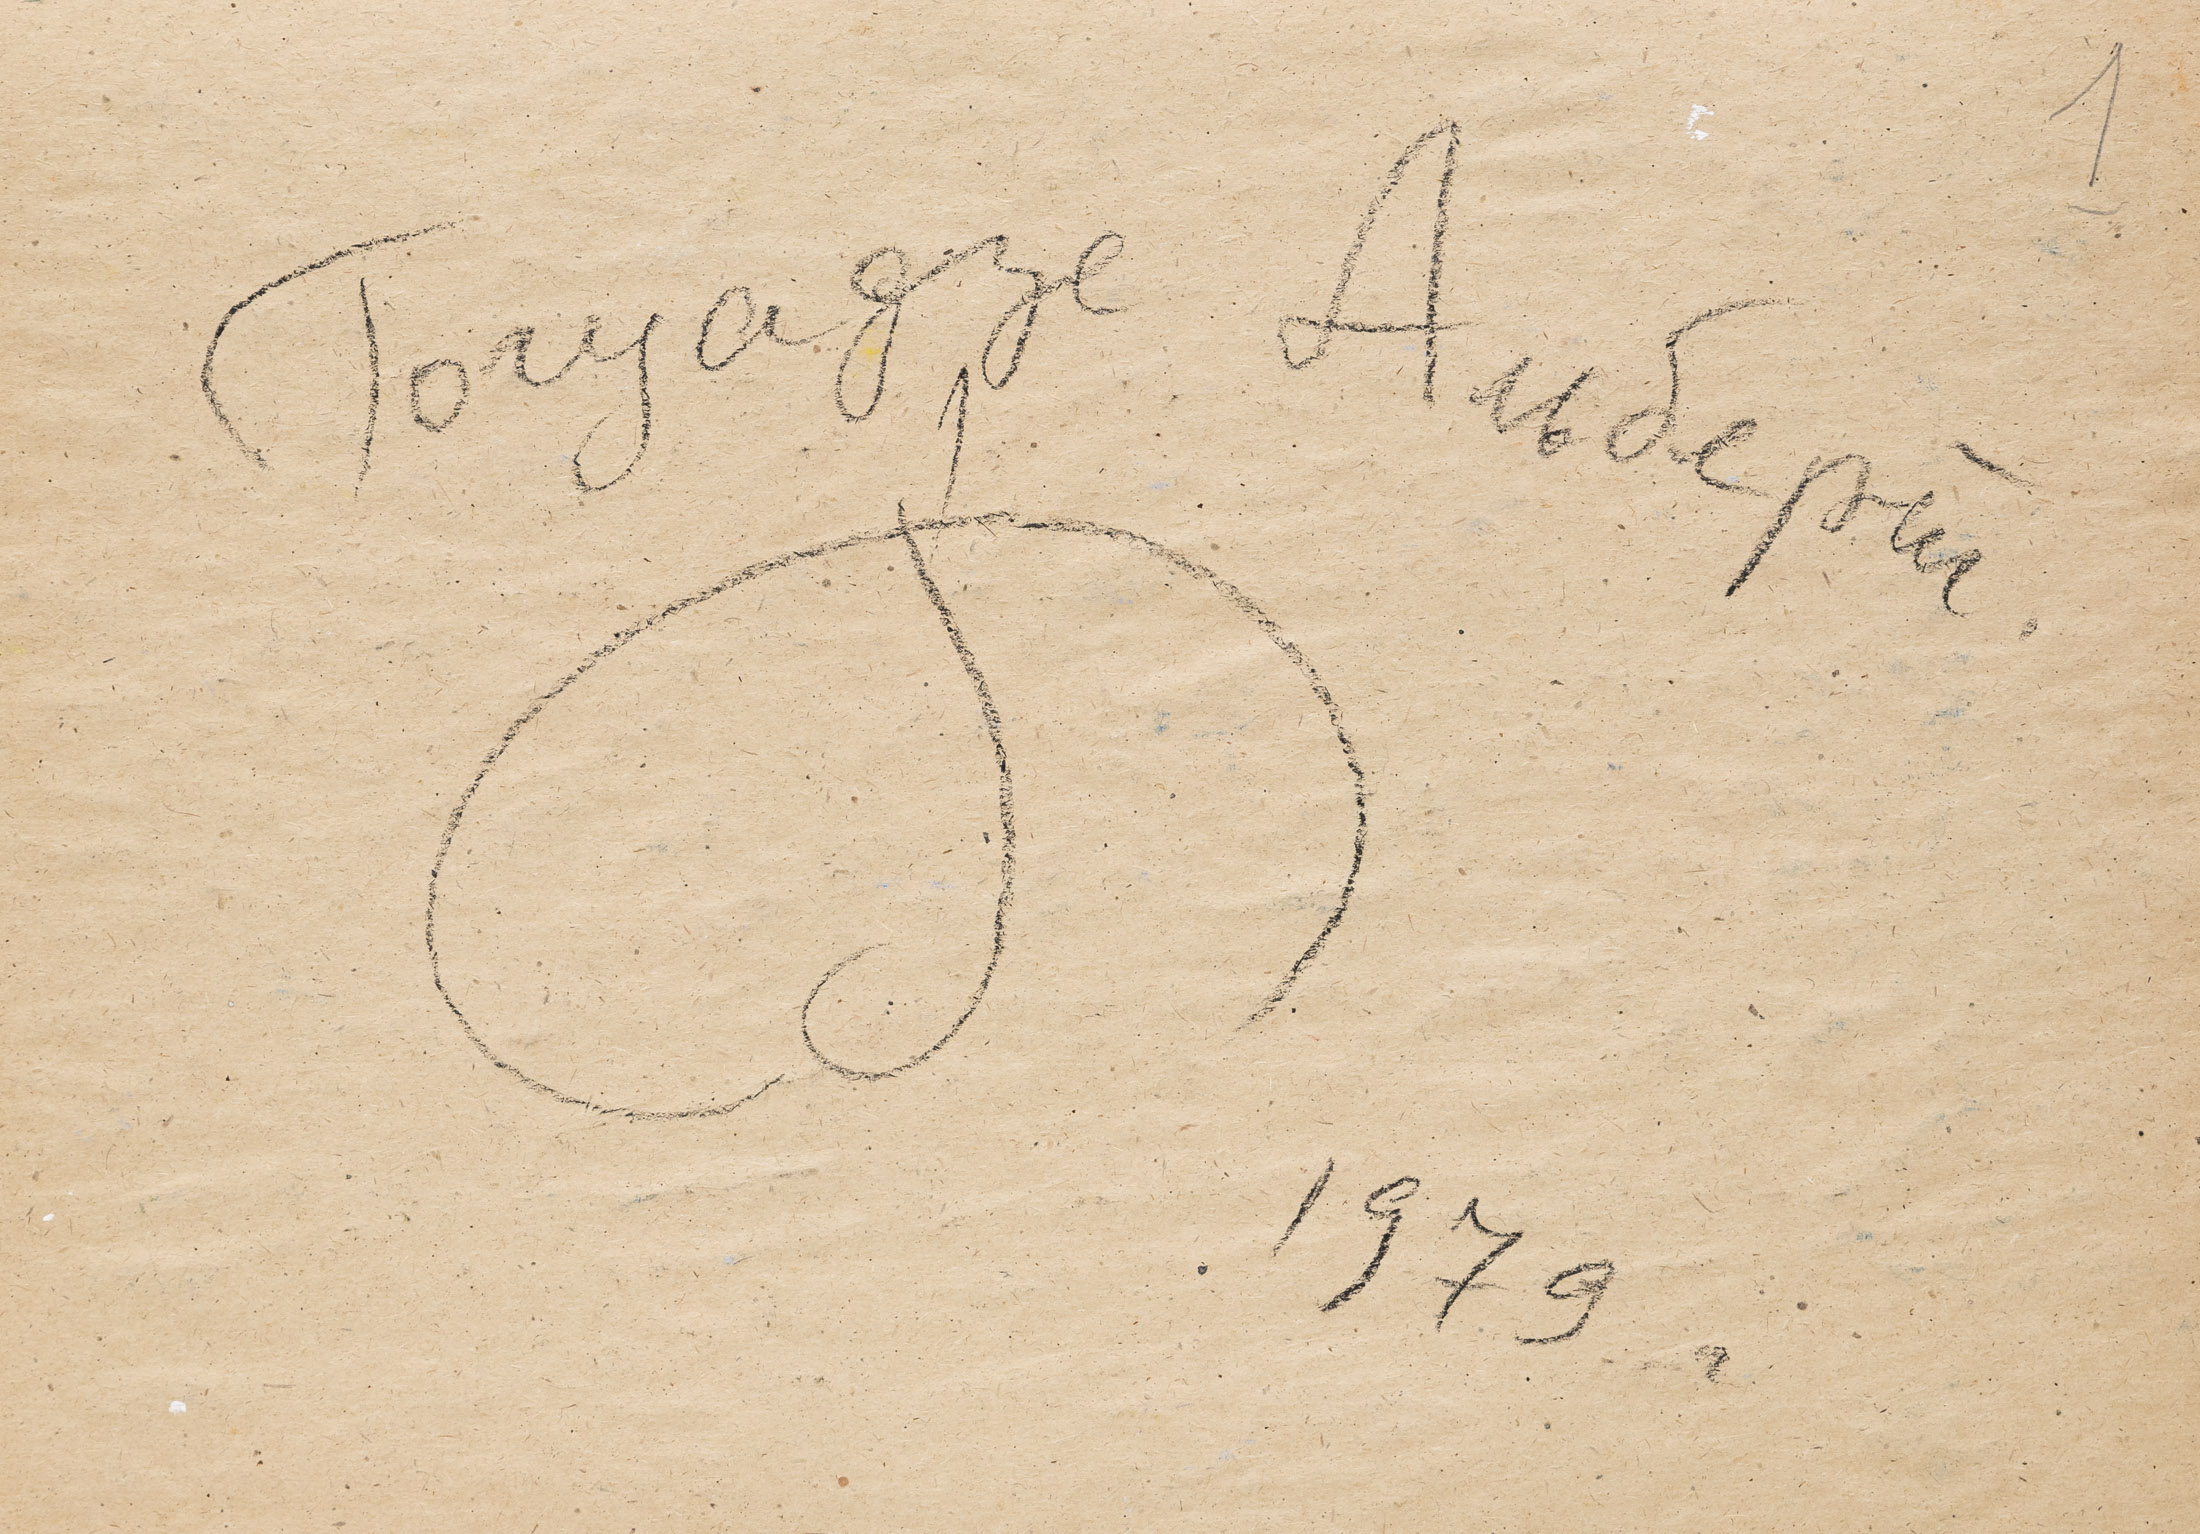 1
Гогуадзе Альберт.
1979 г